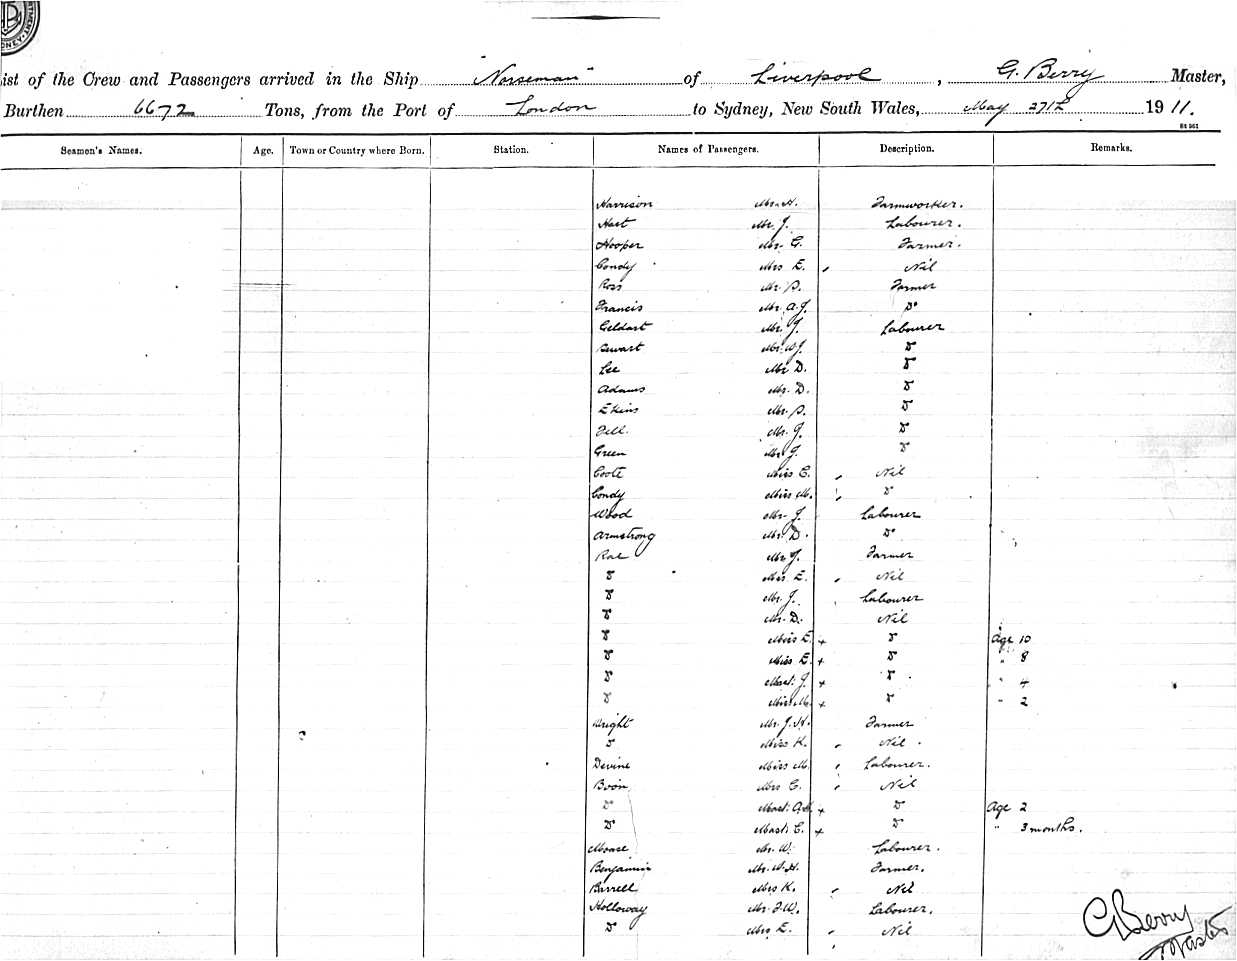 ist of the Crew and Passengers arrived in the Ship "Norseman" of Liverpool, G. Berry Master,
Burthen 6672 Tons, from the Port of London to Sydney, New South Wales, May 27th 1911.
Seamen's Names. Age. Town or Country where Born. Station. Names of Passengers. Description. Remarks.
Harrison Mr. H. Farmworker.
Hart Mr. J. Labourer.
Hooper Mr. G. Farmer.
Condy Mrs E. Nil
Ross Mr. Farmer
Francis Mr. A.J. Do
Geldart Mr. J. Labourer
Mr. W.J. Do
Lee Mr D. Do
Adams Mr. D. Do
Ekins Mr. Do
Mr. J. Do
Green Mr J. Do
Coote Miss C. Nil
Condy Miss M. Do
Wood Mr. J. Labourer
Armstrong Mr. D. Do
Rae Mr J. Farmer
Do Mrs E. Nil
Do Mr. J. Labourer
Do Mr. D. Nil
Do Miss E. + Do Age 10
Do Miss E. + Do " 8
Do Mast. J. + Do " 4
Do Miss M. + Do " 2
Wright Mr. J.H. Farmer
Do Miss K. Nil.
Devine Miss M. Labourer.
Boon Mrs C. Nil
Do Mast. + Do Age 2
Do Mast. C. + Do " 3 months.
Mr. W. Labourer.
Benjamin Mr. W.H. Farmer.
Burrell Mrs K. Nil
Holloway Mr. F.W. Labourer.
Do Mrs. E. Nil
G Berry
Master